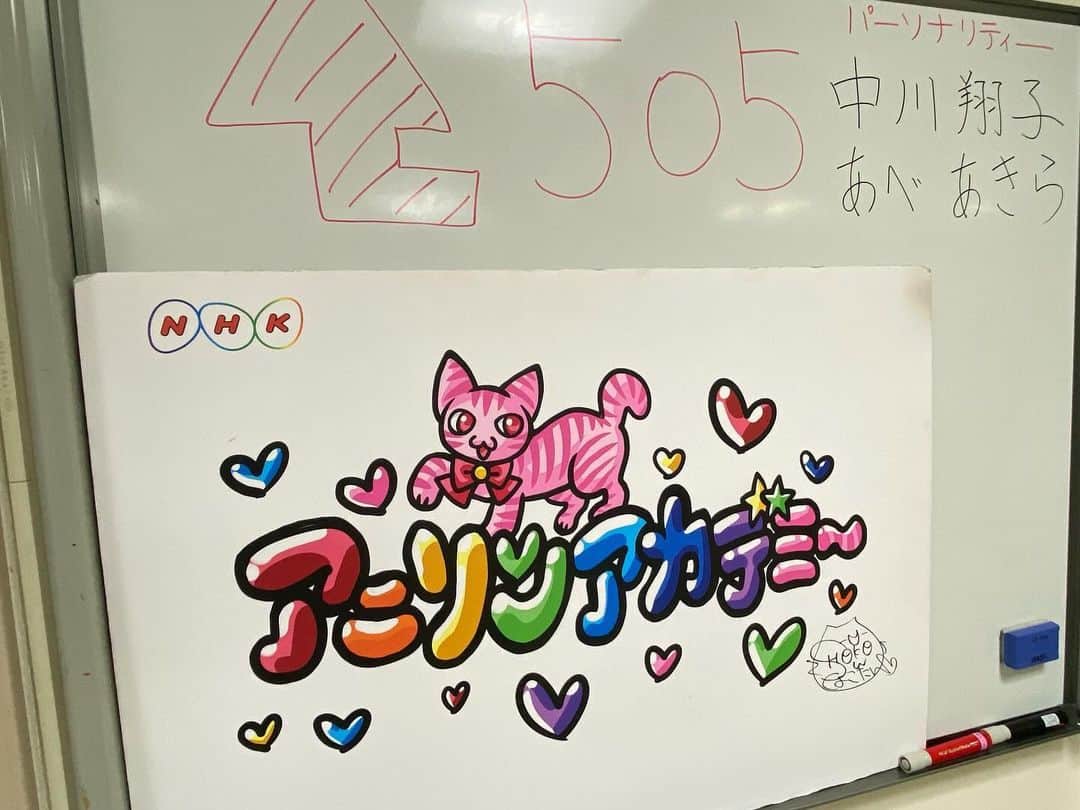 505
パーソナリティー
中川翔子
あべ あきら
NHK
アニソンアカデミー